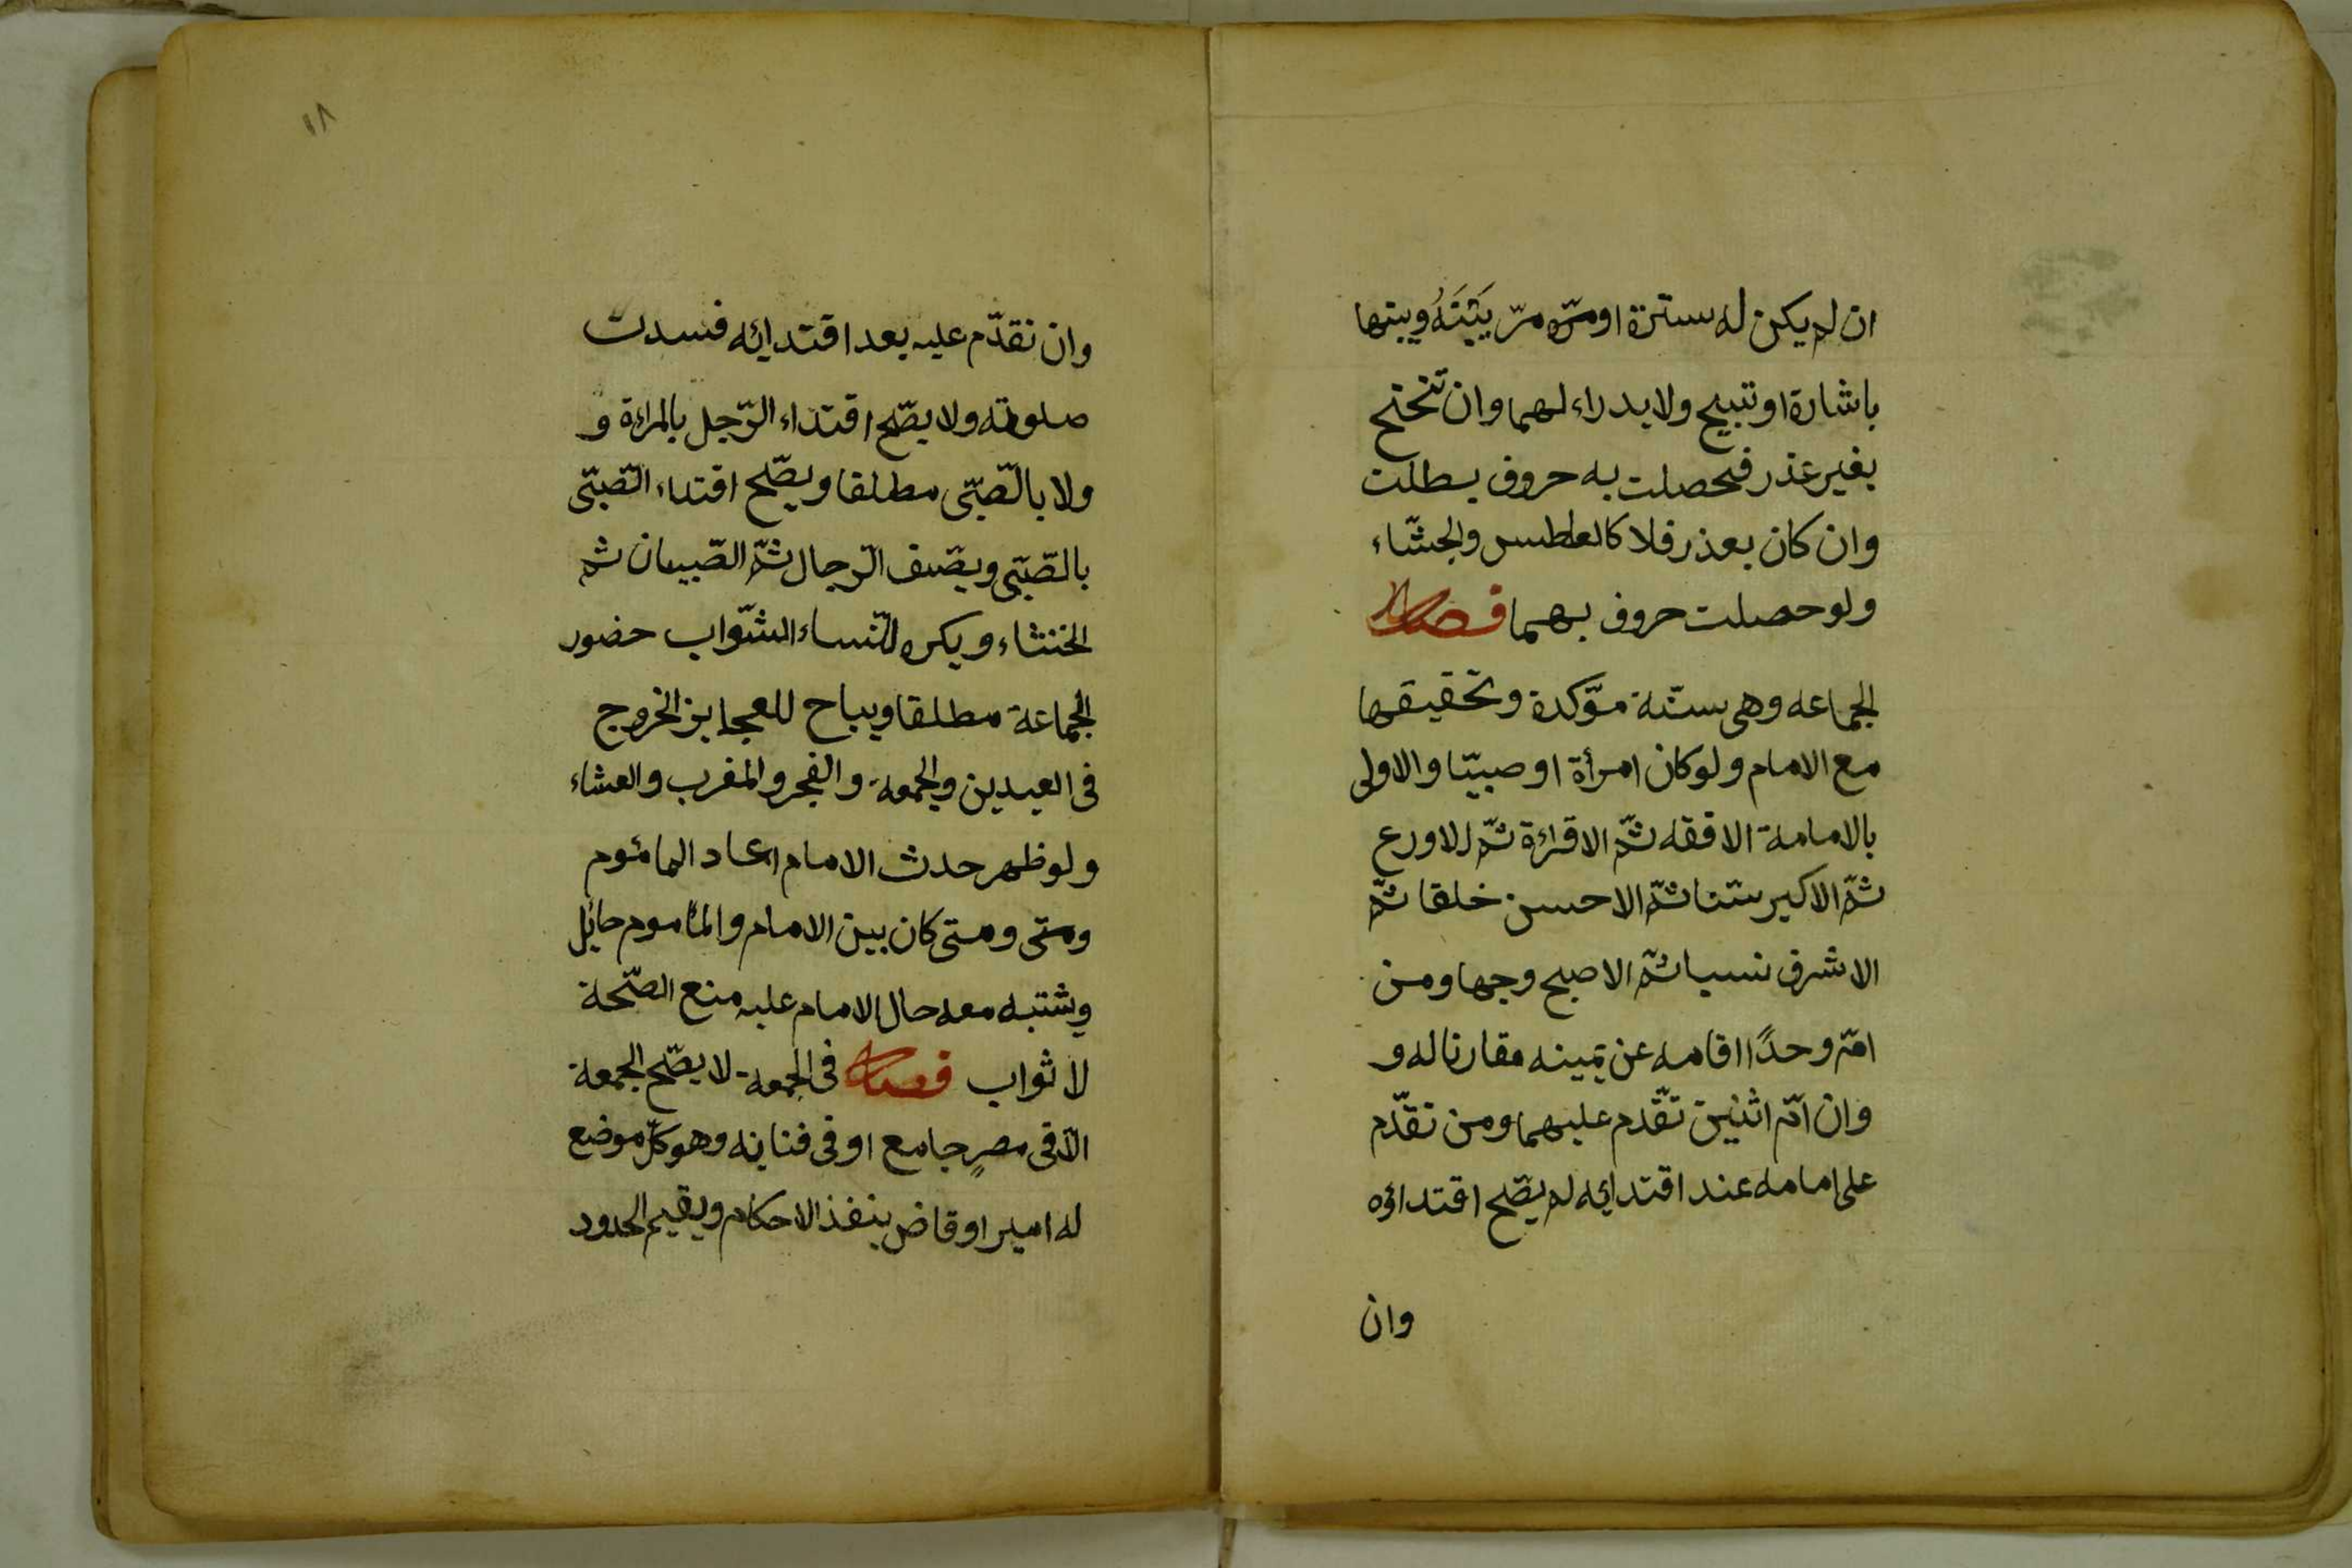 ان لم يكن له سترة او مرّ بينَهُ وبينها
باشارة او تسبيح ولا يدراء لهما وان تنحنح
بغير عذر فحصلت به حروف بطلت
وان كان بعذر فلا كالعطس والجشّاء
ولو حصلت حروف بهما فصل
الجماعه وهي سنّة مؤكدة وتحقيقها
مع الامام ولو كان امرأة او صبيّا والاولى
بالامامة الافقه ثمّ الاقراءة ثمّ للاورع
ثمّ الاكبر سنّا ثمّ الاحسن خلقا ثمّ
الاشرف نسبا ثمّ الاصبح وجها ومن
امّ وحدًا اقامه عن يمينه مقارنا له و
وان امّ اثنين تقّدم عليهما ومن تقدّم
على امامه عند اقتدائه لم يصّح اقتداؤه
وان
١٨
وان تقدّم عليه بعد اقتدائه فسدت
صلوته ولا يصّح اقتداء الرّجل بالمراءة و
ولا بالصّبّى مطلقا ويصّح اقتداء الصّبّى
بالصّبّى ويصّف الرّجال ثمّ الصّبيان ثم
الخنثاء ويكره للنّساء الشّواب حضور
الجماعة مطلقا ويباح للعجايز الخروج
فى العيدين والجمعة والفجر والمغرب والعشاء
ولو ظهر حدث الامام اعاد المائموم
ومتى ومتى كان بين الامام والمأموم حائل
وشتبه معه حال الامام عليه منع الصّحة
لا ثواب فصل فى الجمعة لا يصّح الجمعة
الّا فى مصرٍ جامع او فى فنائه وهو كلّ موضع
له امير او قاض ينفذ الاحكام ويقيم الحدود